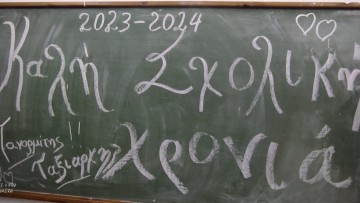 2023-2024
Καλή Σχολική
Χρονιά
Πανορμίτης!!
Ταξιάρχης